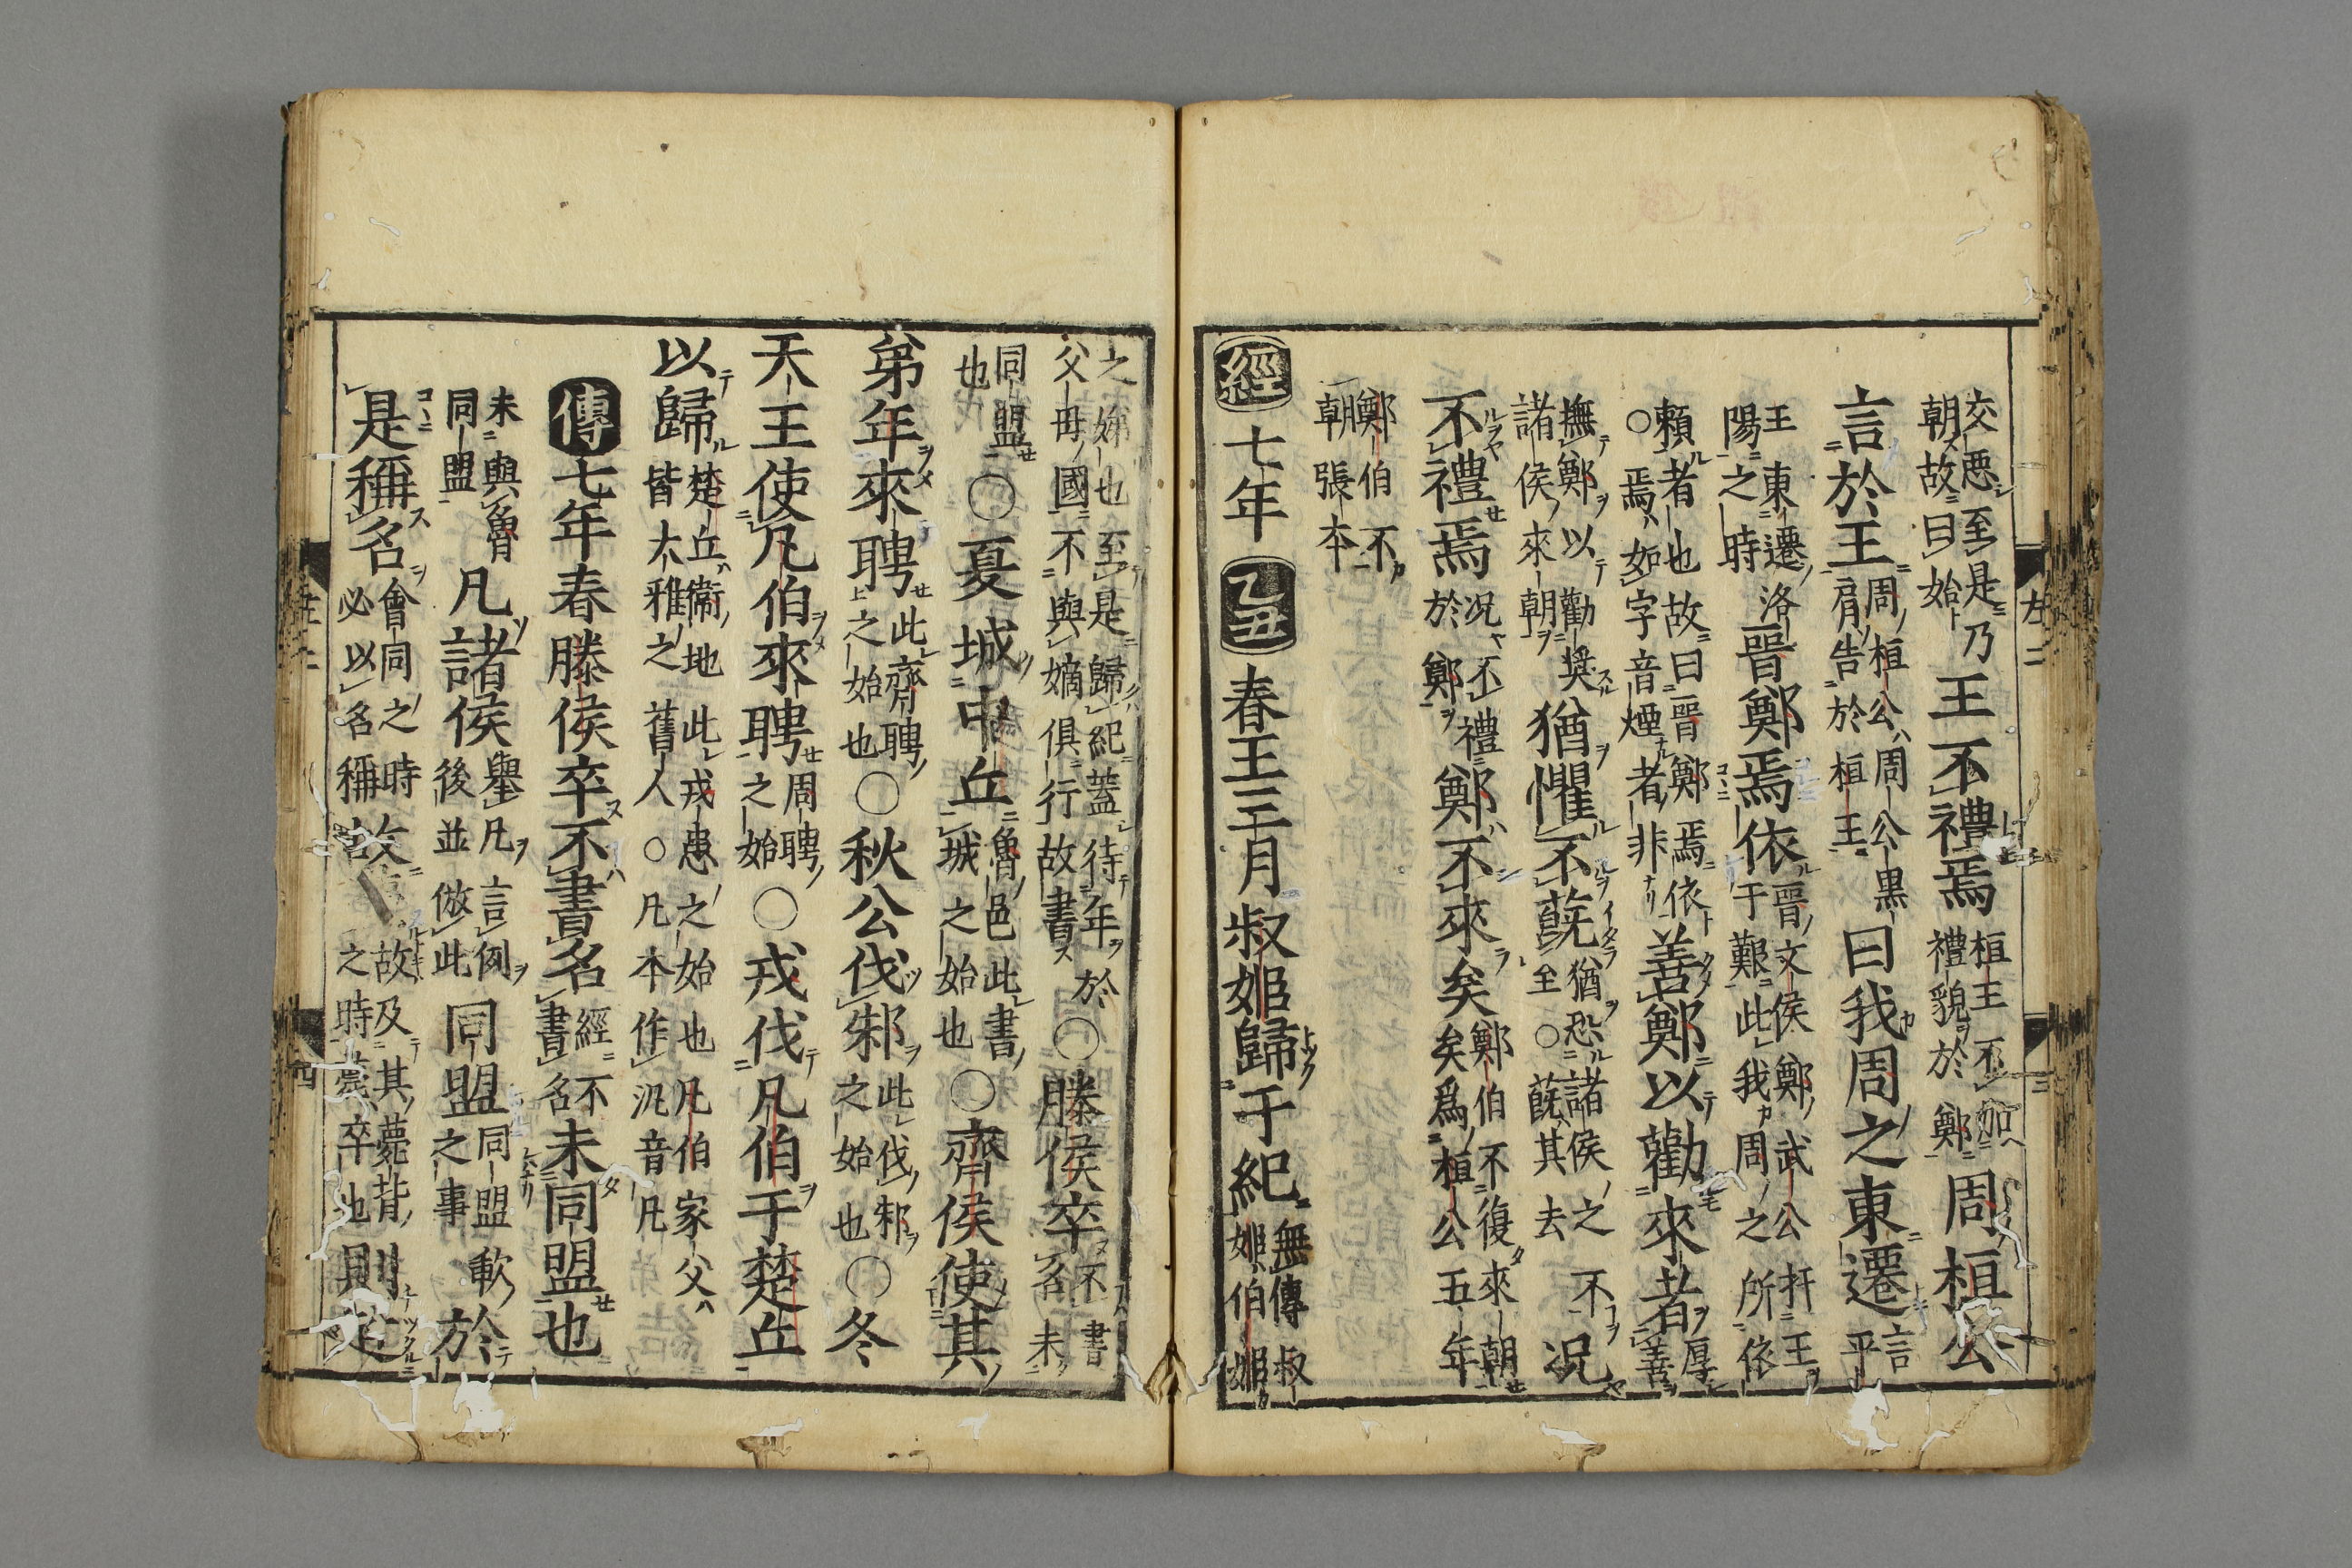 交惡至是乃朝故曰始王不禮焉桓王不加禮貌於鄭周桓公
言於王周桓公周公黒肩告於桓王曰我周之東遷言平
王東遷洛陽之時晉鄭焉依晉文侯鄭武公扞王于艱此我周之所依
賴者也故曰晉鄭焉依○焉如字音煙者非善鄭以勸來者厚善
撫鄭以勸奬諸侯來朝猶懼不蔇猶恐諸侯之不至○蔇其去况
不禮焉况不禮於鄭鄭不來矣鄭伯不復來朝矣爲桓公五年
鄭伯不朝張本
經七年乙丑春王三月叔姬歸于紀無傳叔姬伯姬
之娣也至是歸紀蓋待年於父母國不與嫡俱行故書○滕侯卒不書名未
同盟也○夏城中丘魯邑此書城之始也○齊侯使其
弟年來聘此齊聘之始也○秋公伐邾此伐邾之始也○冬
天王使凡伯來聘周聘之始○戎伐凡伯于楚丘
以歸楚丘衞地此戎患之始也凡伯家父皆大雅之舊人○凡本作汎音凡
傳七年春滕侯卒不書名經不書名未同盟也
未與魯同盟凡諸侯舉凡言例後並倣此同盟同盟歃之事於
是稱名會同之時必以名稱故故及其薨背之時薨卒也則赴